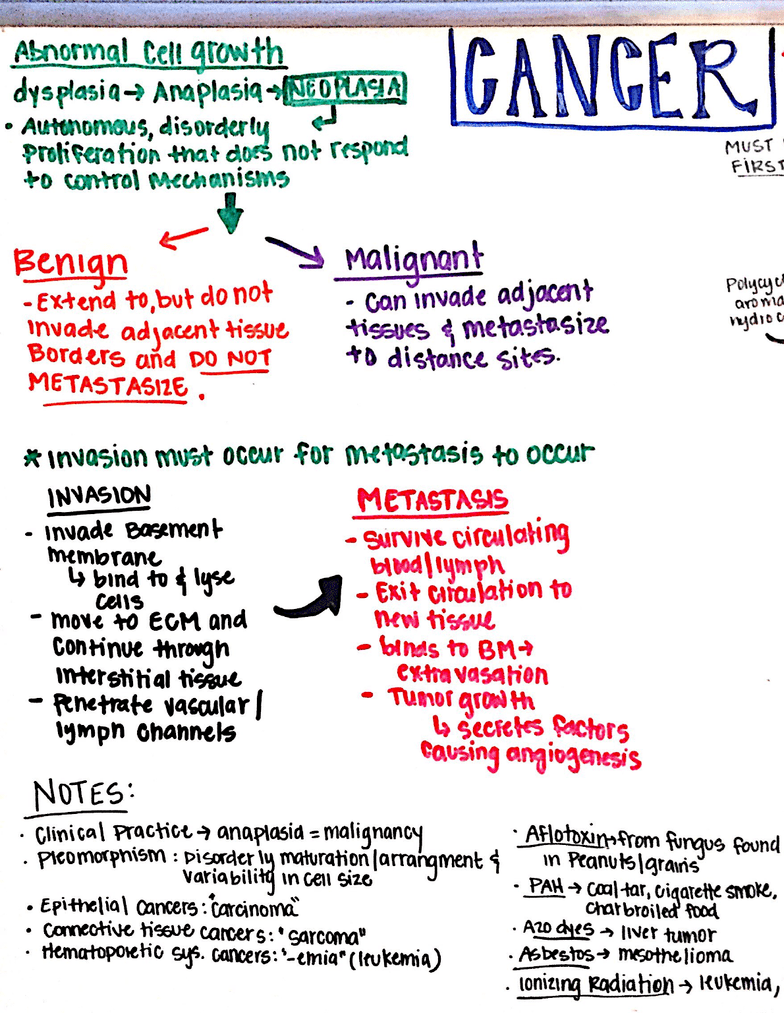 Abnormal Cell growth
dysplasia → Anaplasia → NEOPLASIA
• Autonomous, disorderly
Proliferation that does not respond
to control Mechanisms
CANCER
MUST
FIRST
Benign
- Extend to, but do not
invade adjacent tissue
Borders and DO NOT
METASTASIZE.
Malignant
- can invade adjacent
tissues & metastasize
to distance sites.
Polycyc
aroma
hydroc
* Invasion must occur for metastasis to occur
INVASION
- Invade Basement
membrane
↳ bind to & lyse
cells
- move to ECM and
continue through
interstitial tissue
- Penetrate vascular/
lymph channels
METASTASIS
- survive circulating
blood/lymph
- Exit circulation to
new tissue
- binds to BM →
extravasation
- Tumor growth
↳ secretes factors
causing angiogenesis
NOTES:
• Clinical Practice → anaplasia = malignancy
• Pleomorphism: Disorderly maturation/arrangment &
variability in cell size
• Epithelial cancers: "carcinoma"
• Connective tissue cancers: "sarcoma"
• Hematopoietic sys. cancers: "-emia" (leukemia)
• Aflotoxin → from fungus found
in Peanuts/grains
• PAH → Coal tar, cigarette smoke,
charbroiled food
• Azo dyes → liver tumor
• Asbestos → mesothelioma
• Ionizing Radiation → leukemia,